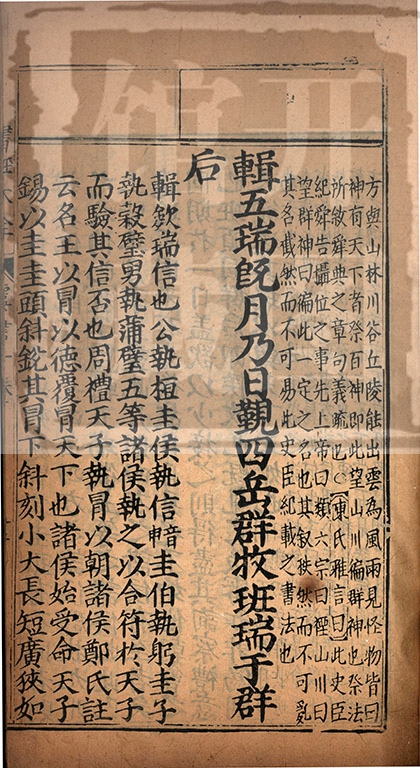 方與山林川谷丘陵能出雲為風雨見怪物皆曰
神有天下者祭百神即此望山川徧群神也祭法
所敘舜典之章句義疏也○【東氏雅言曰】此史臣
紀舜告攝位之事先上帝曰類六宗曰禋山川曰
望群神曰徧此一定之名也其叙秩然而不可亂
其名截然而不可易此史臣紀載之書法也
輯五瑞旣月乃日觀四岳群牧班瑞于群
后
輯歛瑞信也公執桓圭侯執信音申圭伯執躬圭子
執穀璧男執蒲璧五等諸侯執之以合符於天子
而驗其信否也周禮天子執冒以朝諸侯鄭氏註
云名王以冒以德覆冒天下也諸侯始受命天子
錫以圭圭頭斜銳其冒下斜刻小大長短廣狹如